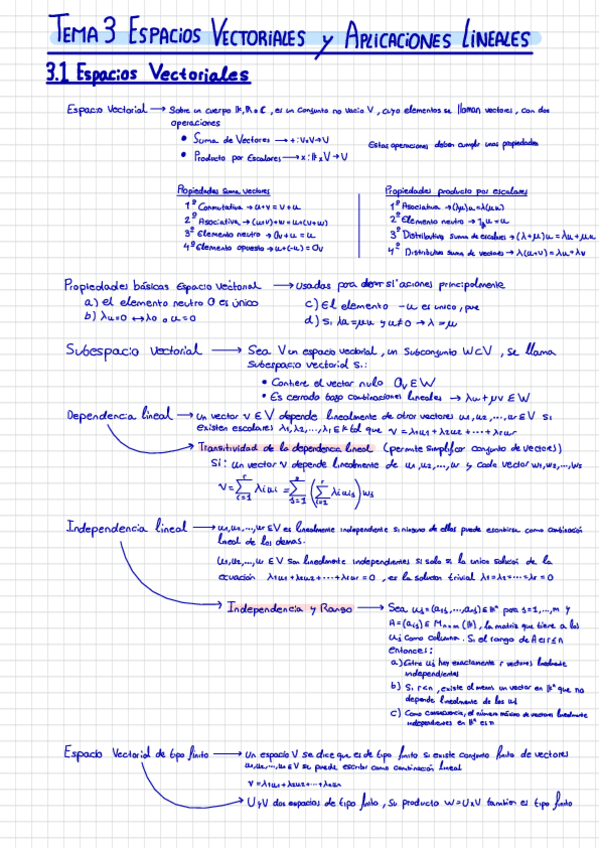 TEMA 3 ESPACIOS VECTORIALES y APLICACIONES LINEALES
3.1 Espacios Vectoriales
Espacio Vectorial → Sobre un cuerpo K, R o C, es un conjunto no vacio V, cuyo elementos se llaman vectores, con dos
operaciones
• Suma de Vectores → + : V×V→V
• Producto por Escalares → x : K×V→V
Estas operaciones deben cumplir unas propiedades
Propiedades suma vectores
1º Conmutativa → u+v = v+u
2º Asociativa → (u+v)+w = u+(v+w)
3º Elemento neutro → 0v+u = u
4º Elemento opuesto → u+(-u) = 0v
Propiedades producto por escalares
1º Asociativa → (λμ)u = λ(μu)
2º Elemento neutro → 1u = u
3º Distributiva Suma de escalares → (λ+μ)u = λu+μu
4º Distributiva suma de vectores → λ(u+v) = λu+λv
Propiedades básicas Espacio Vectorial → usadas para principalmente
a) el elemento neutro 0 es único
b) λu=0 ↔ λ0 o u=0
c) El elemento -u es unico, que
d) Si λu=μu y u≠0 → λ=μ
Subespacio Vectorial → Sea V un espacio vectorial, un Subconjunto W⊂V, se llama
Subespacio vectorial si:
• Contiene el vector nulo 0v∈W
• Es cerrado bajo combinaciones lineales → λu+μv∈W
Dependencia lineal → un vector v∈V depende linealmente de otros vectores u1,u2,...,ur∈V si
existen escalares λ1,λ2,...,λr∈K tal que v=λ1u1+λ2u2+...+λrur
→ Transitividad de la dependencia lineal (permite simplificar conjunto de vectores)
Si: un vector v depende linealmente de u1,u2,...,ur y cada vector w1,w2,...,ws
v = ∑ λiui = ∑ (∑ λiuis) ws
Independencia lineal → u1,u2,...,ur∈V es linealmente independiente si ninguno de ellos puede escribirse como combinación
lineal de los demas.
u1,u2,...,ur∈V son linealmente independientes si solo si la unica solucion de la
ecuación λ1u1+λ2u2+...+λrur=0, es la solución trivial λ1=λ2=...=λr=0
→ Independencia y Rango → Sea uj=(a1j,...,anj)∈Kⁿ para j=1,...,m y
A=(aij)∈Mn×m(K), la matriz que tiene a los
uj como columna. Si el rango de A es r≤n
entonces:
a) Entre uj hay exactamente r vectores linealmente
independientes
b) Si r<n, existe al menos un vector en Kⁿ que no
depende linealmente de los uj
c) Como consecuencia, el número máximo de vectores linealmente
independientes en Kⁿ es n
Espacio Vectorial de tipo finito → Un espacio V se dice que es de tipo finito si existe conjunto finito de vectores
u1,u2,...,un∈V se puede escribir como combinación lineal
v=λ1u1+λ2u2+...+λnun
→ U y V dos espacios de tipo finito, su producto W=U×V tambien es tipo finito